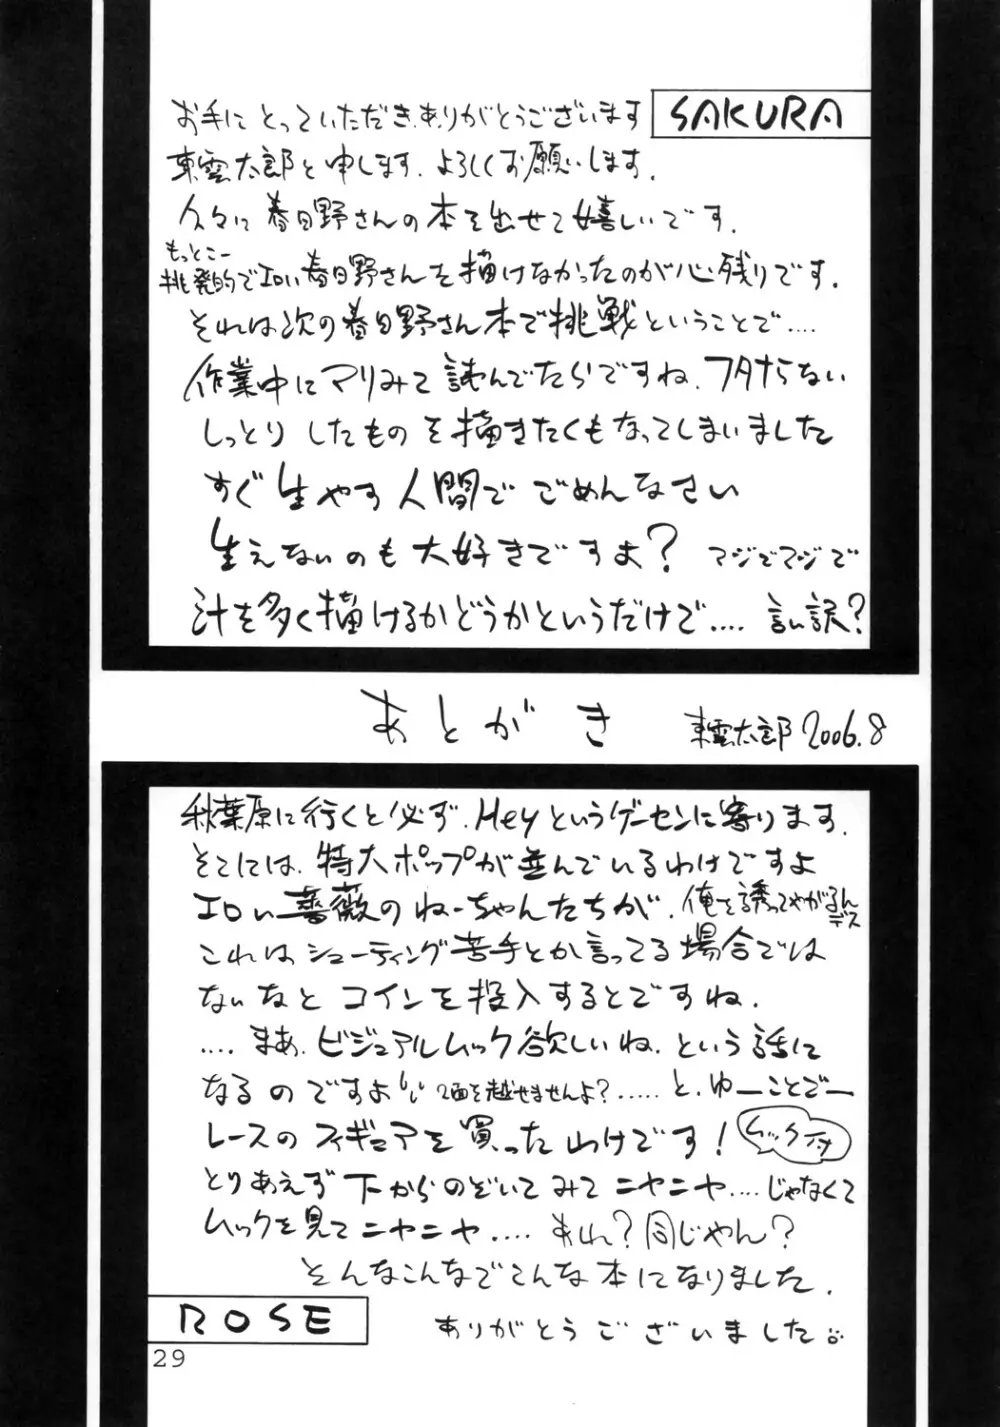 SAKURA
お手にとっていただきありがとうございます
東雲太郎と申します。よろしくお願いします。
久々に春日野さんの本を出せて嬉しいです。
もっとこー
挑発的でエロい春日野さんを描けなかったのが心残りです。
それは次の春日野さん本で挑戦ということで....
作業中にマリみて読んでたらですね、フタナらない
しっとりしたものを描きたくもなってしまいました
すぐ生やす人間でごめんなさい
生えないのも大好きですよ?マジでマジで
汁を多く描けるかどうかというだけで....言い訳?
あとがき 東雲太郎2006.8
秋葉原に行くと必ず、Heyというゲーセンに寄ります。
そこには、特大ポップが並んでいるわけですよ
エロい薔薇のねーちゃんたちが、俺を誘ってやがるんデス
これはシューティング苦手とか言ってる場合では
ないなとコインを投入するとですね、
....まあ、ビジュアルムック欲しいね、という話に
なるのですよ
2面を越せませんよ?.....と、ゆーことでー
レースのフィギュアを買ったわけです!
ムック付
とりあえず下からのぞいてみてニヤニヤ....じゃなくて
ムックを見てニヤニヤ....あれ?同じやん?
そんなこんなでこんな本になりました。
ありがとうございました
ROSE
29